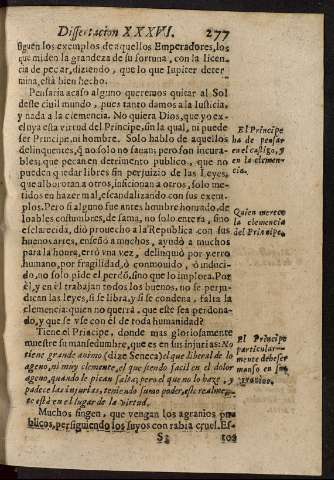 Dissertacion XXXVI. 277
siguen los exemplos de aquellos Emperadores, los
que miden la grandeza de su fortuna, con la licen-
cia de pecar, diziendo, que lo que Iupiter deter
mina, està bien hecho.
Pensarìa acaso alguno queremos quitar al Sol
deste civil mundo, pues tanto damos a la Iusticia,
y nada a la clemencia. No quiera Dios, que yo ex-
cluya esta virtud del Principe, sin la qual, ni puede
ser Principe, ni hombre. Solo hablo de aquellos
delinquentes, q̃ no solo no sanan; pero son incura-
bles; que pecan en detrimento publico, que no
pueden quedar libres sin perjuizio de las Leyes,
que alborotan a otros, inficionan a otros, solo me-
tidos en hazer mal, escandalizando con sus exem-
plos. Pero si alguno fue antes hombre honrado, de
loables costumbres, de fama, no solo entera, sino
esclarecida, diò provecho a la Republica con sus
buenos artes, enseñò a muchos, ayudò a muchos
para la honra, errò vna vez, delinquiò por yerro
humano, por fragilidad, ò conmovido, ò induci-
do, no solo pide el perdõ, sino que lo implora. Por
èl, y en èl trabajan todos los buenos, no se perju-
dican las leyes, si se libra, y si se condena, falta la
clemencia: quien no querrà, que este sea perdona-
do, y que se vse con èl de toda humanidad?
Tiene el Principe, donde mas gloriosamente
muestre su mansedumbre, que es en sus injurias: No
tiene grande animo (dize Seneca) el que liberal de lo
ageno, ni muy clemente, el que siendo facil en el dolor
ageno, quando le pican salta; pero el que no lo haze, y
padece las injurias, teniendo sumo poder, esse realmen-
te està en el lugar de la virtud.
Muchos fingen, que vengan los agravios pu-
blicos, persiguiendo los suyos con rabia cruel. Es-
S3 tos
El Principe
ha de pensar
en el castigo, y
en la clemen-
cia.
Quien merece
la clemencia
del Principe.
El Principe
particular-
mente debe ser
manso en sus
agravios.